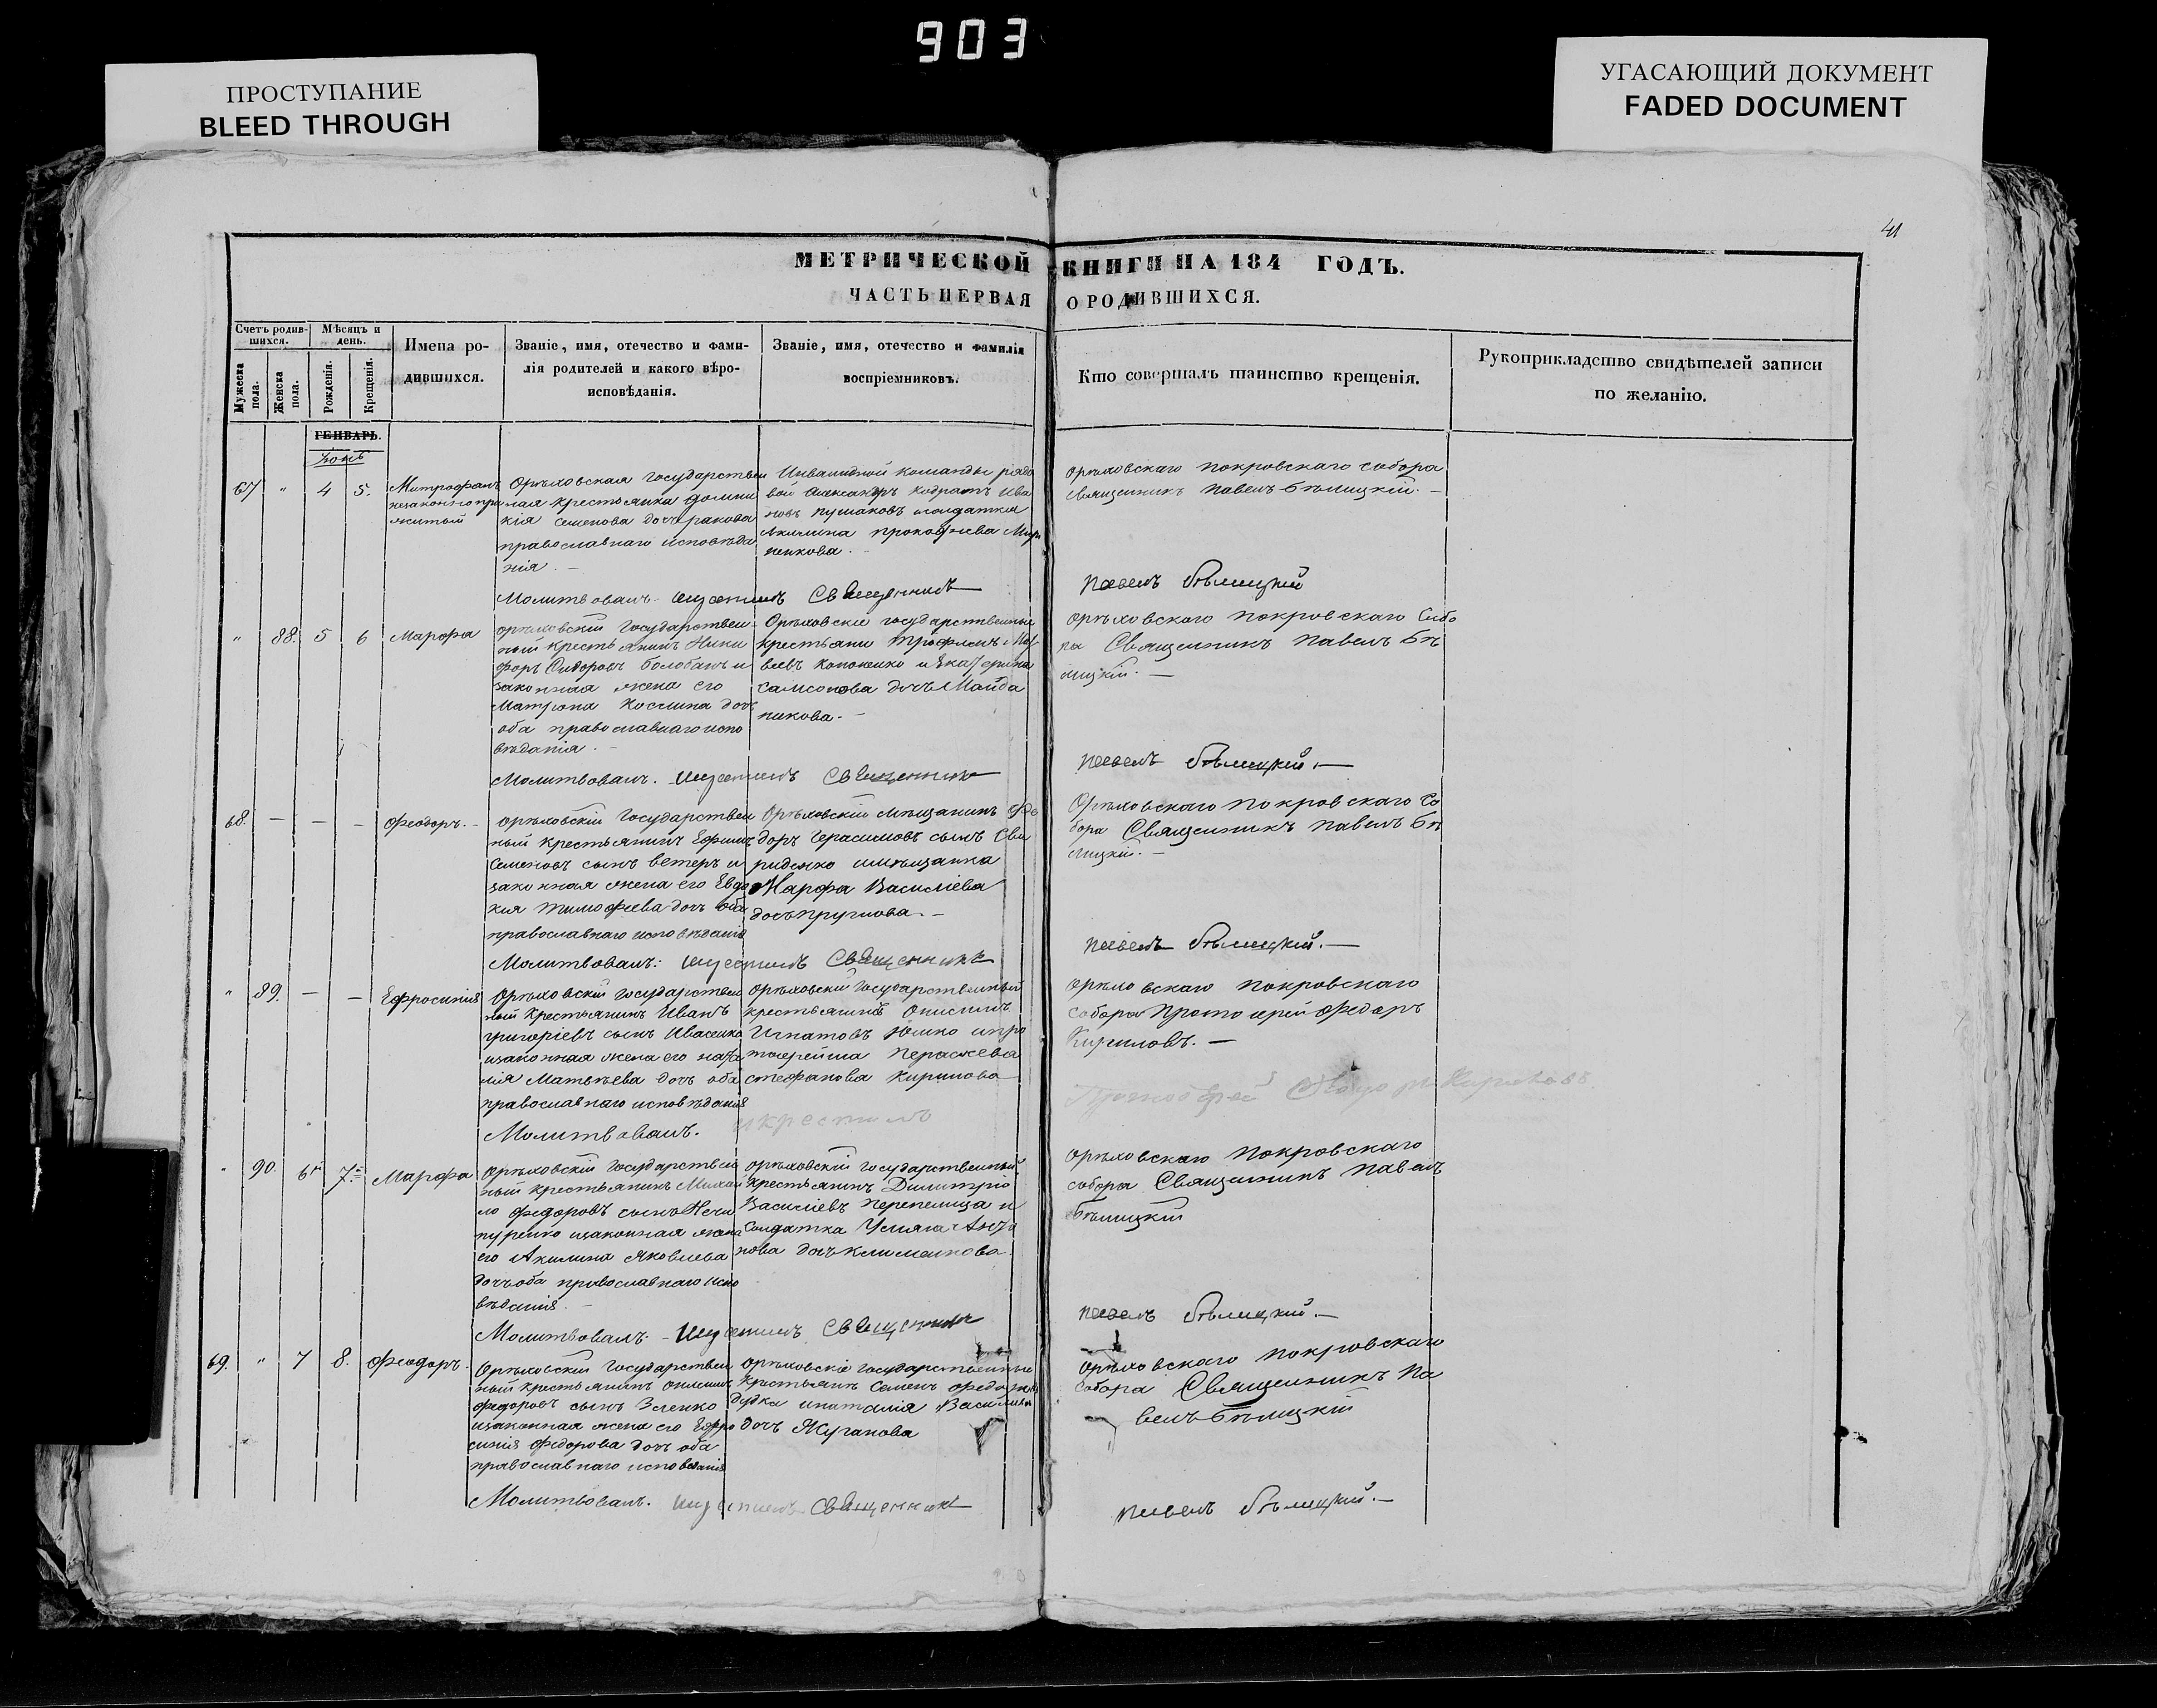 903
ПРОСТУПАНИЕ
BLEED THROUGH
УГАСАЮЩИЙ ДОКУМЕНТ
FADED DOCUMENT
41
МЕТРИЧЕСКОЙ КНИГИ НА 184 ГОДЪ.
ЧАСТЬ ПЕРВАЯ О РОДИВШИХСЯ.
Счетъ родив-
шихся.
Мѣсяцъ и
день.
Мужеска
пола.
Женска
пола.
Рожденія.
Крещенія.
Имена ро-
дившихся.
Званіе, имя, отечество и фами-
лія родителей и какого вѣро-
исповѣданія.
Званіе, имя, отечество и фамилія
воспріемниковъ.
Кто совершалъ таинство крещенія.
Рукоприкладство свидѣтелей записи
по желанію.
ГЕНВАРЬ.
67 " 4 5.
Митрофанъ
незаконнопри
житый
Орѣховская государствен
ная крестьянка Домни
кія Семенова дочь ракова
православнаго исповѣда
нія. —
Инвалидной команды рядо
вой Александръ Кодратъ Ива
новъ Пушаковъ солдатка
Акилина Прокофіева
никова.
Орѣховскаго Покровскаго собора
священникъ Павелъ Бѣлицкій. —
Молитвовалъ икрестилъ Священникъ
Павелъ Бѣлицкій
" 88. 5 6 Марфа
Орѣховскій государствен-
ный крестьянинъ Ники
форъ Сидоровъ болобанъ и
законная жена его
Матрона Космина дочь
оба православнаго испо
вѣданія. —
Орѣховскіе государственные
крестьяни Трофимъ Мат
веевъ Кононенко и Екатерина
Самсонова дочь Майда
никова. —
Орѣховскаго Покровскаго Собо
ра Священникъ Павелъ Бѣ
лицкій. —
Молитвовалъ. икрестилъ Священникъ
Павелъ Бѣлицкій. —
68. — — — Феодоръ. —
Орѣховскій Государствен
ный крестьянинъ Ефимъ
Семеновъ сынъ ветеръ и
законная жена его Евдо
кія Тимофеева дочь оба
православнаго исповѣданія
Орѣховскій мѣщанинъ Фе
доръ Герасимовъ сынъ Сви
риденко имѣщанка
Марфа Василіева
дочь Пруглова. —
Орѣховскаго Покровскаго Со
бора Священникъ Павелъ Бѣ
лицкій. —
Молитвовалъ: икрестилъ Священникъ
Павелъ Бѣлицкій. —
" 89. — — Ефросинія
Орѣховскій государствен
ный крестьянинъ Иванъ
григоріевъ сынъ Ивасенко
изаконная жена его ната
лія Матвѣева дочь оба
православнаго исповѣданія
Орѣховскій Государственный
крестьянинъ Онисимъ
Игнатовъ Юшко ипро
тоерейша Параскева
стефанова Кирилова
Орѣховскаго Покровскаго
собора Протоиерей Федоръ
Кириловъ. —
Молитвовалъ. икрестилъ
Протоиерей Федоръ Кириловъ.
" 90. 6 7 Марфа
Орѣховскій Государствен
ный крестьянинъ Михай
ло Федоровъ сынъ Нечи
пуренко изаконная жена
его Акилина Яковлева
дочь оба православнаго испо
вѣданія. —
Орѣховскій государственный
крестьянинъ Димитрій
Василіевъ Перепелица и
Солдатка Уліяна Анто
нова дочь Клименкова
Орѣховскаго Покровскаго
собора Священникъ Павелъ
Бѣлицкій
Молитвовалъ. — икрестилъ Священникъ
Павелъ Бѣлицкій. —
69. " 7 8. Феодоръ.
Орѣховскій Государствен
ный крестьянинъ
федоровъ сынъ Зленко
изаконная жена его Ефро
синія федорова дочь оба
православнаго исповѣданія
Орѣховскіе государственные
крестьяне Семенъ Федоровъ
Дудка инаталія Василіева
дочь Жуганова
Орѣховскаго Покровскаго
собора Священникъ Па
велъ Бѣлицкій
Молитвовалъ. икрестилъ Священникъ
Павелъ Бѣлицкій. —